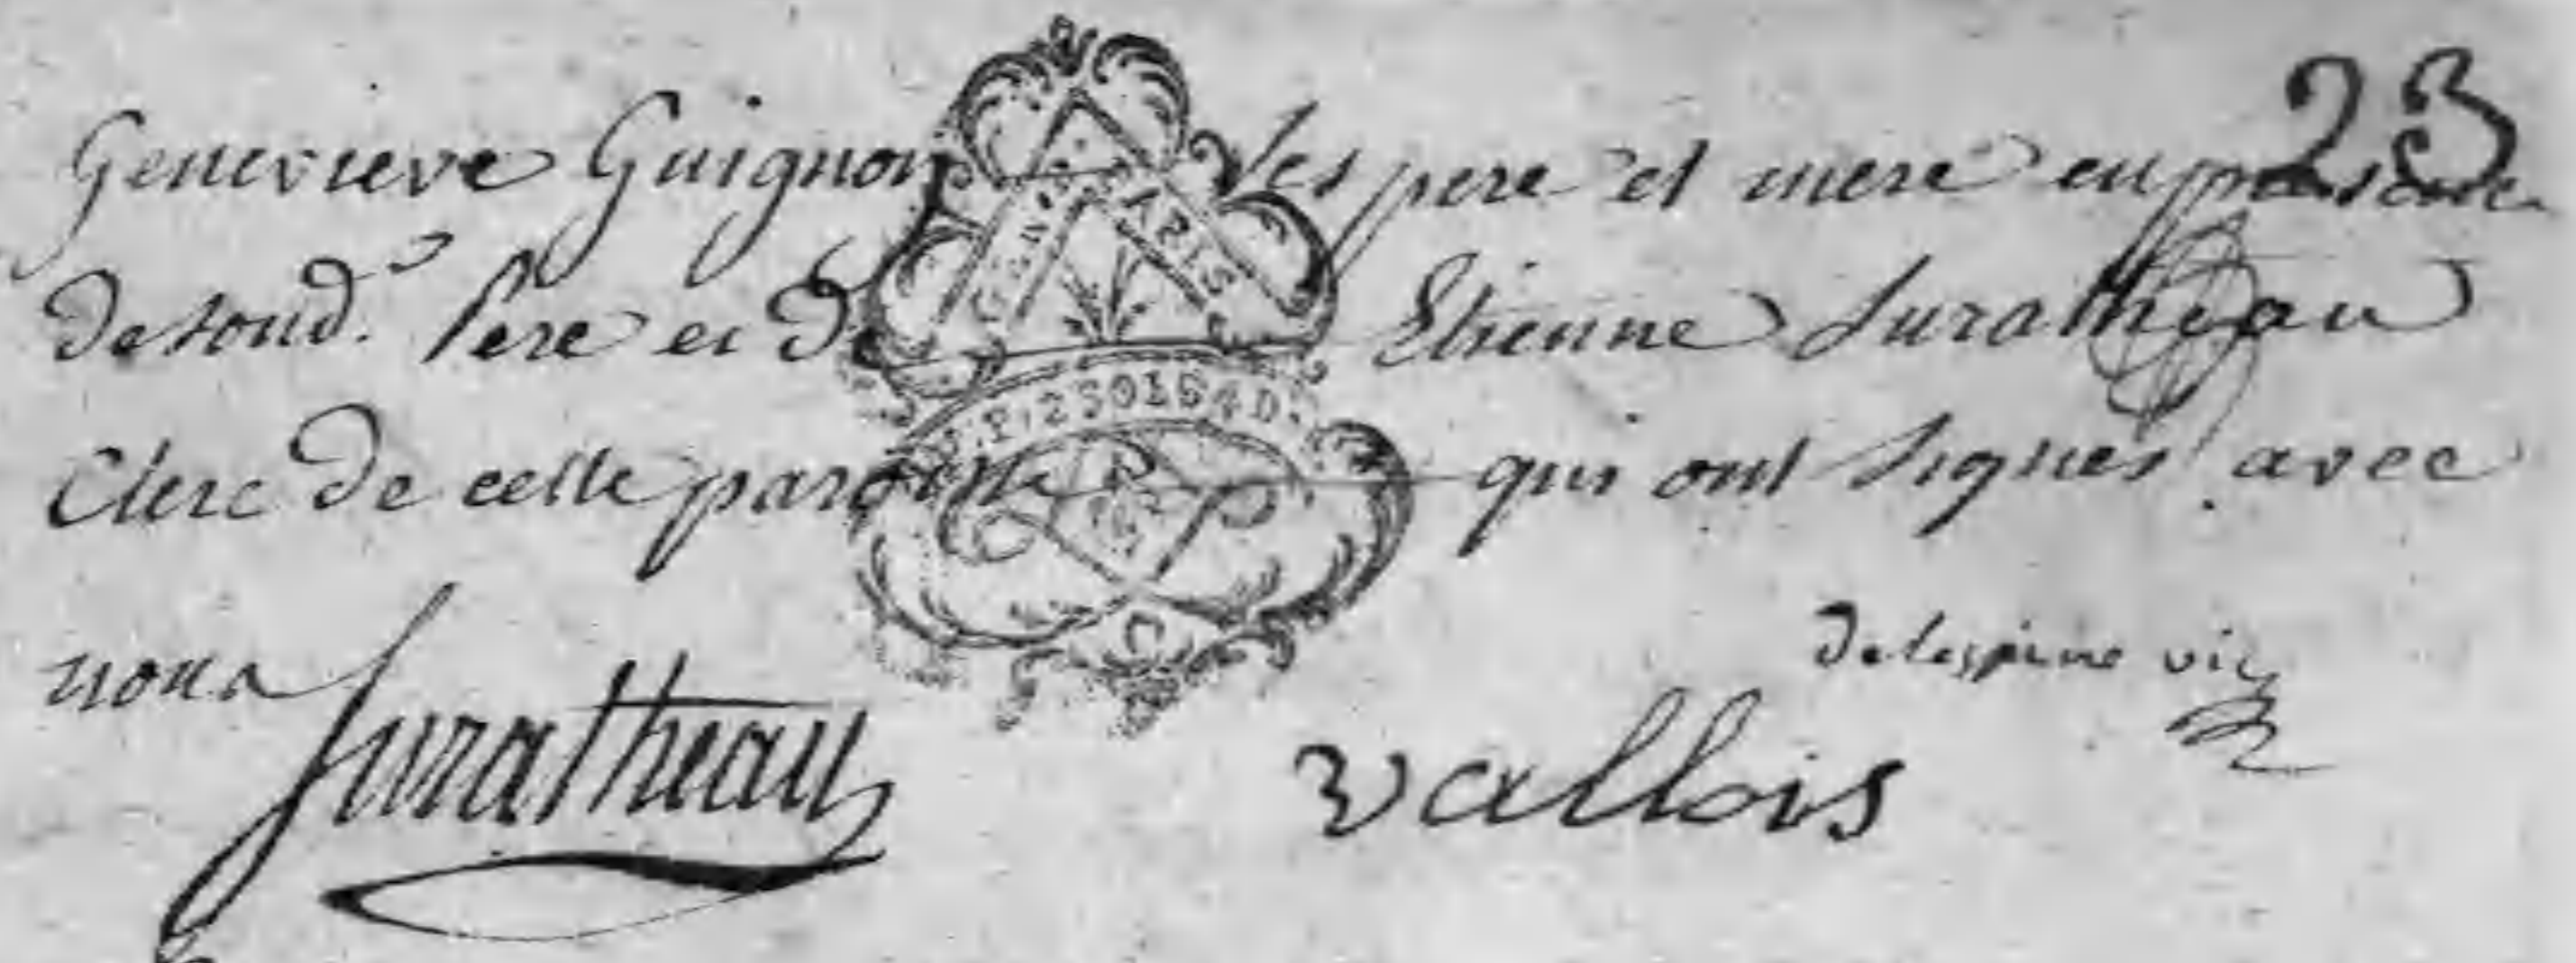 23
Genevieve Guignon ses pere et mere en presence
de soud. Pere et de Etienne Suratheau
Clerc de cette paroisse qui ont signés avec
nous
GEN. PARIS
delespine vic
Suratheau
Vallois